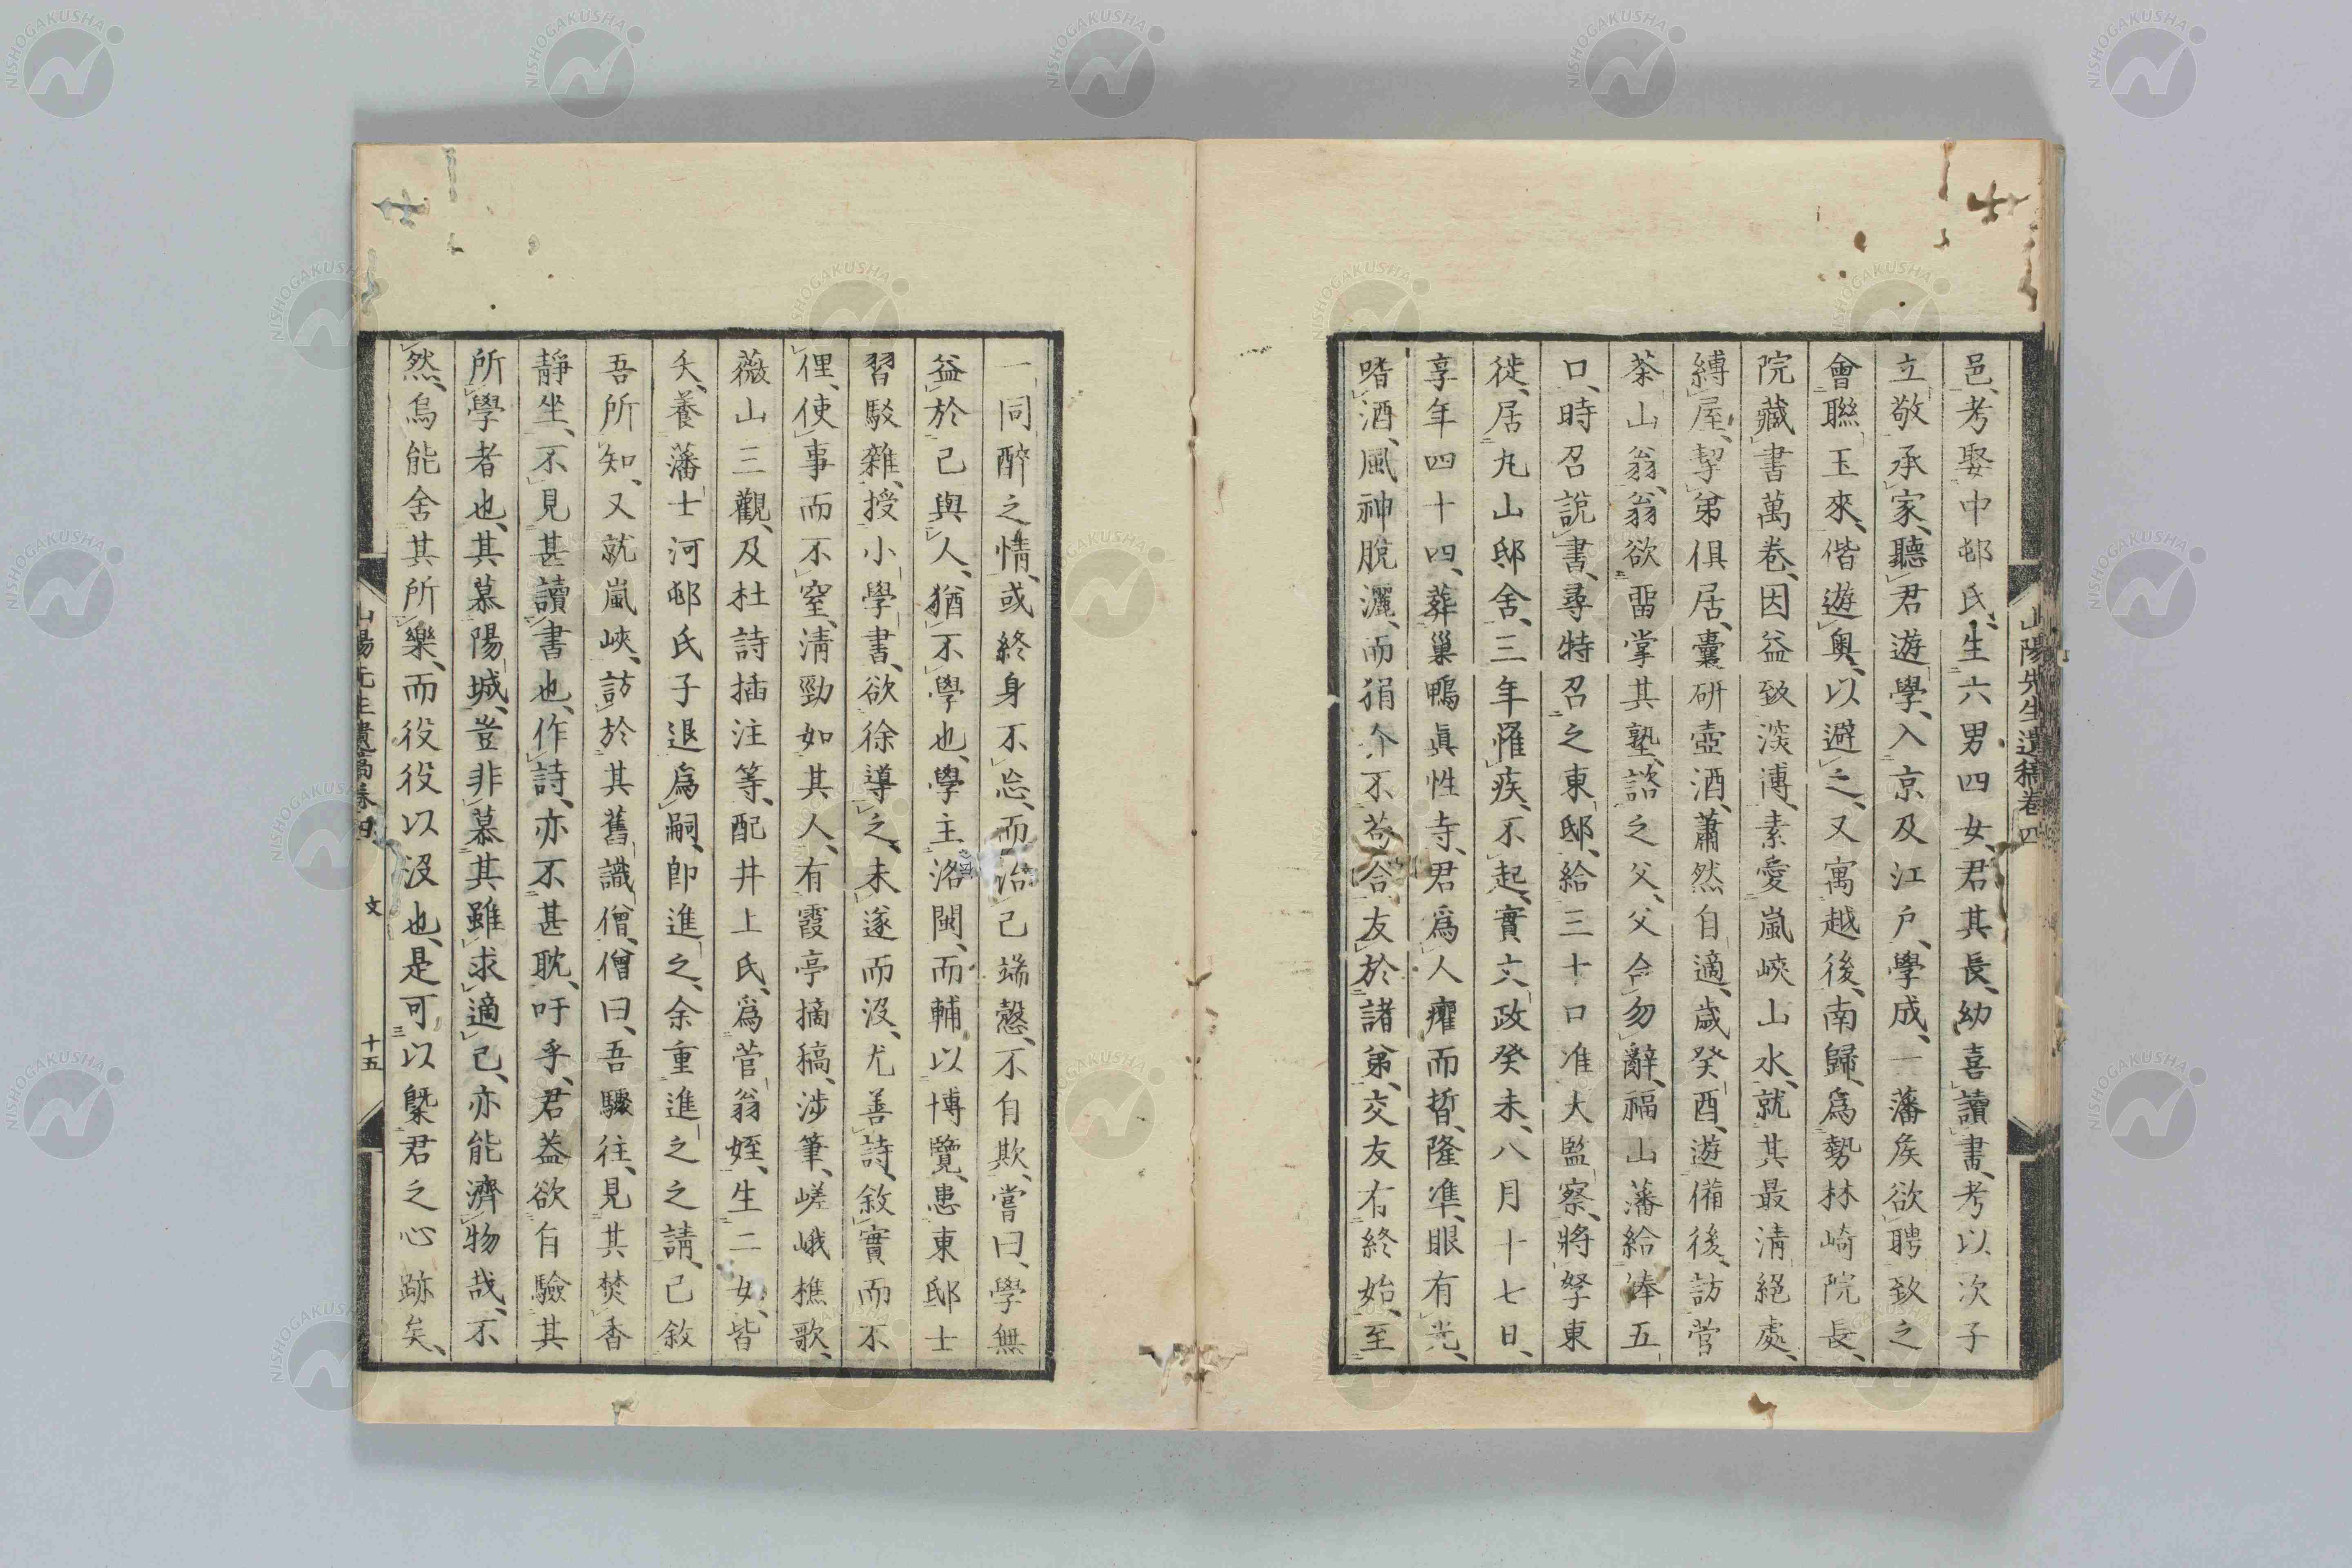 山陽先生遺稿卷四
邑、考娶中邨氏、生六男四女、君其長、幼喜讀書、考以次子
立敬承家、聽君遊學、入京及江戶、學成、一藩矦欲聘致之
會聯玉來、偕遊奧、以避之、又寓越後、南歸、爲勢林崎院長、
院藏書萬卷、因益致淡博、素愛嵐峽山水、就其最淸絕處、
縛屋、挈弟俱居、囊硏壺酒、蕭然自適、歲癸酉、遊備後、訪菅
茶山翁、翁欲留掌其塾、諮之父、父命勿辭、福山藩給俸五
口、時召說書、尋特召之東邸、給三十口准大監察、將孥東
徙、居丸山邸舍、三年罹疾、不起、實文政癸未、八月十七日、
享年四十四、葬巢鴨眞性寺、君爲人癯而晳、隆準、眼有光、
嗜酒、風神脫灑、而狷介不苟合、友於諸弟、交友有終始、至
一同醉之情、或終身不忘、而治己端愨、不自欺、嘗曰、學無
益於己與人、猶不學也、學主洛閩、而輔以博覽、患東邸士
習駁雜、授小學書、欲徐導之、未遂而沒、尤善詩、敘實而不
俚、使事而不窒、淸勁如其人、有霞亭摘稿、涉筆、嵯峨樵歌、
薇山三觀、及杜詩插注等、配井上氏、爲菅翁姪、生二女、皆
夭、養藩士河邨氏子退爲嗣、卽進之、余重進之之請、已敘
吾所知、又就嵐峽、訪於其舊識僧、僧曰、吾驟往、見其焚香
靜坐、不見甚讀書也、作詩、亦不甚耽、吁乎、君葢欲自驗其
所學者也、其慕陽城、豈非慕其雖求適己、亦能濟物哉、不
然、烏能舍其所樂、而役役以沒也、是可以槩君之心跡矣、
山陽先生遺稿卷四 文 十五
NISHOGAKUSHA